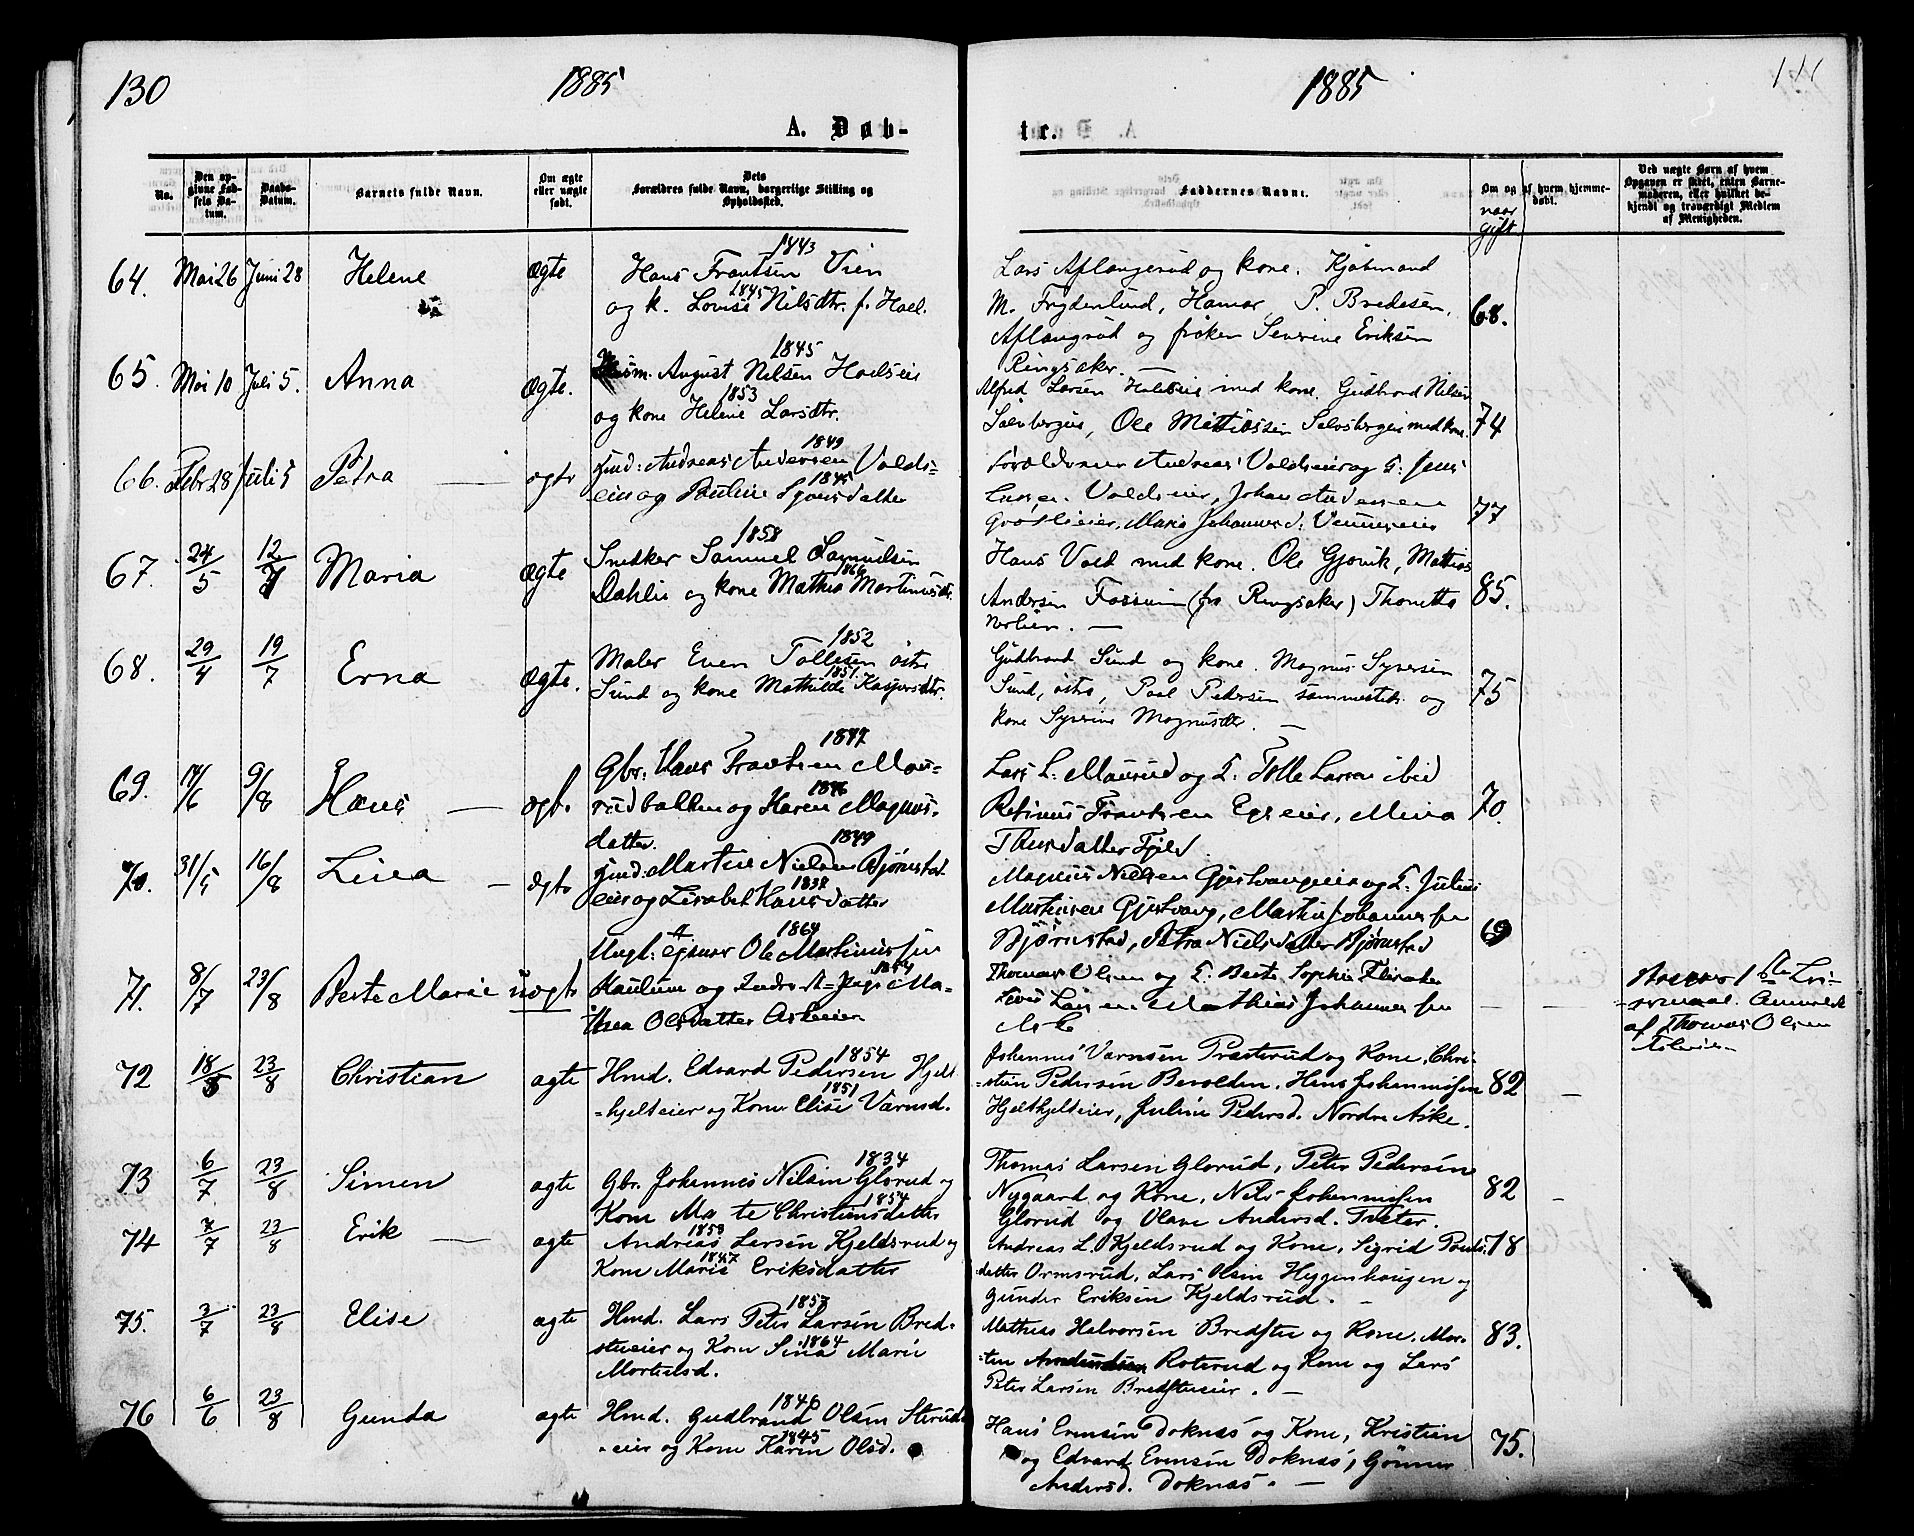 130
1885
A. Døb-
No.
Den opgivne Fødsels Datum.
Daabs-Datum.
Barnets fulde Navn.
Om ægte eller uægte født.
Dets Forældres fulde Navn, borgerlige Stilling og Opholdssted.
64. Mai 26 Juni 28 Helene Ægte
1843
Hans Frantsen Vien
1845
og k. Lovise Nilsdtr. f. Hoel.
65. Mai 10 Juli 5. Anna Ægte.
1845
August Nilsen Hoelseie
1853
og kone Helene Larsdtr.
66. Febr 28 Juli 5 Petra — ægte
1849
Andreas Andersen Volds=
1845
eie og Pauline Sjønsdatter
67. 24/5 12/7 Maria Ægte
1858
Snedker Samuel Samuelsen
1866
Dahlie og kone Mathea Martinusdtr.
68. 29/4 19/7 Erna Ægte.
1852
Maler Even Tollesen østre
1851.
Sund og kone Mathilde Kaspersdtr.
69. 14/6 9/8 Hans — ægte
1847
Gbr. Hans Frantsen Mau-
1846
rudbakken og Karen Magnus-
datter.
70. 31/5 16/8 Lina — ægte
1849
Martin Nielsen Bjørnstad
1838
eie og Lisabet Hansdatter
71. 8/7 23/8 Berte Marie uægte
1864
Ungk. Ole Martiniussen
Paulum og Ma-
thea Olsdatter Askeeien
72 18/5 23/8 Christian ægte
1854
Hmd. Edvard Pedersen Hjelt
1851
=hjelteier og Kone Elise Varnsd.
73 6/7 23/8 Simen ægte
1834
Gbr. Johannes Nilsen Glorud og
1854
Kone Ma te Christiensdatter
74 7/7 23/8 Erik — ægte
1853
Andreas Larsen Kjeldsrud og
1847
Kone Marie Eriksdatter
75. 3/7 23/8 Elise ægte
1857
Hmd. Lars Peter Larsen Bred-
1864
stueier og Kone Sina Marie
Mortensd.
76 6/6 23/8 Gunda ægte
1846
Hmd. Gudbrand Olsen Sterud
1845
-eier og Kone Karin Olsd.
1885
ter.
Faddernes Navne.
Om og af hvem hjemmedøbt.
naar gift
Ved uægte Børn af hvem Opgaven er skeet, enten Barnemoderen, eller hvilket bekjendt og troværdigt Medlem af Menigheden.
Lars Aflangerud og kone. Kjøbmand
M. Frydenlund, Hamar, P. Bredesen,
Aflangrud og frøken Severine Eriksen
Ringsaker. —
68.
Alfred Larsen Hoelseie med kone. Gudbrand Nilsen
Solbergeie, Ole Mathisen Solbergeie med kone.
74
Forældrene Andreas Voldseie og E: Jens
Larsen Voldseier, Johan Andersen
Maria Johannesd. Venneseie
77
Hans Vold med kone. Ole Gjøvik, Mathias
Andersen Fossum (fra Ringsaker) Thonetta
Norlien. —
85.
Gudbrand Sund og kone. Magnus Syversen
Sund, østre, Paal Pedersen sammesteds og
kone Syverine Magnusdtr. —
75
Lars L. Maurud og E. Tolle Larsen ibid
Petinus Frantsen Egseier, Mina
Thusdatter Fjeld.
70.
Magnus Nielsen Gjestvangeie og E. Julius
Martinsen Gjestvang, Martin Johannessen
Bjørnstad, Petra Nielsdatter Bjørnstad
69
Thomas Olsen og E. Berte Sophie
Larsen Mathias Johannessen
Aske
— —
1ste Lei-
ermaal. Anmeldt
af Thomas Olsen
Johannes Varnsen Præsterud og Kone, Chri-
=stian Pedersen Bevolden, Hans Johannesen
Hjelthjelteier, Juline Pedersd. Nordre Aske.
82 —
Thomas Larsen Glorud, Peter Pedersen
Nygaard og Kone, Nils Johannesen
Glorud og Olave Andersd. Tveter.
82 —
Andreas L. Kjeldsrud og Kone, Sigrid Pouls-
datter Ormsrud, Lars Olsen Hyggenhaugen og
Gunder Eriksen Kjeldsrud. —
78
Mathias Halvorsen Bredstu og Kone, Mor-
=ten Amundsen Roterud og Kone og Lars
Peter Larsen Bredstueier. —
83.
Hans Evensen Doknæs og Kone, Kristian
og Edvard Evensen Doknæs, Gønner
Andersd. Doknæs. —
75.